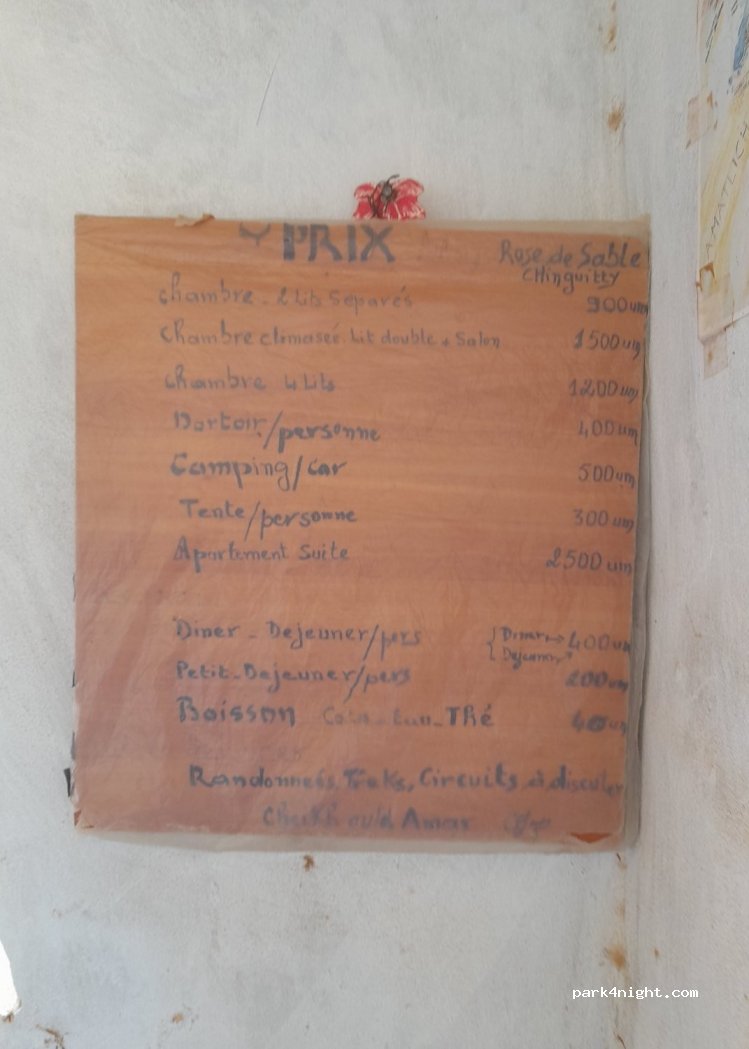 PRIX
Rose de Sable
CHinguitty
chambre - 2 Lits Separés 900um
Chambre climaseé. Lit double + Salon 1500um
chambre 4 Lits 1200um
Dortoir/personne 400um
Camping/car 500um
Tente/personne 300um
Apartement Suite 2500um
Diner - Dejeuner/pers { Diner → 400um
Dejeuner →
Petit-Dejeuner/pers 200um
Boisson Thé 40um
Randonneés, Treks, Circuits à discuter
Cheikh ould Amar
AMATLICH
park4night.com